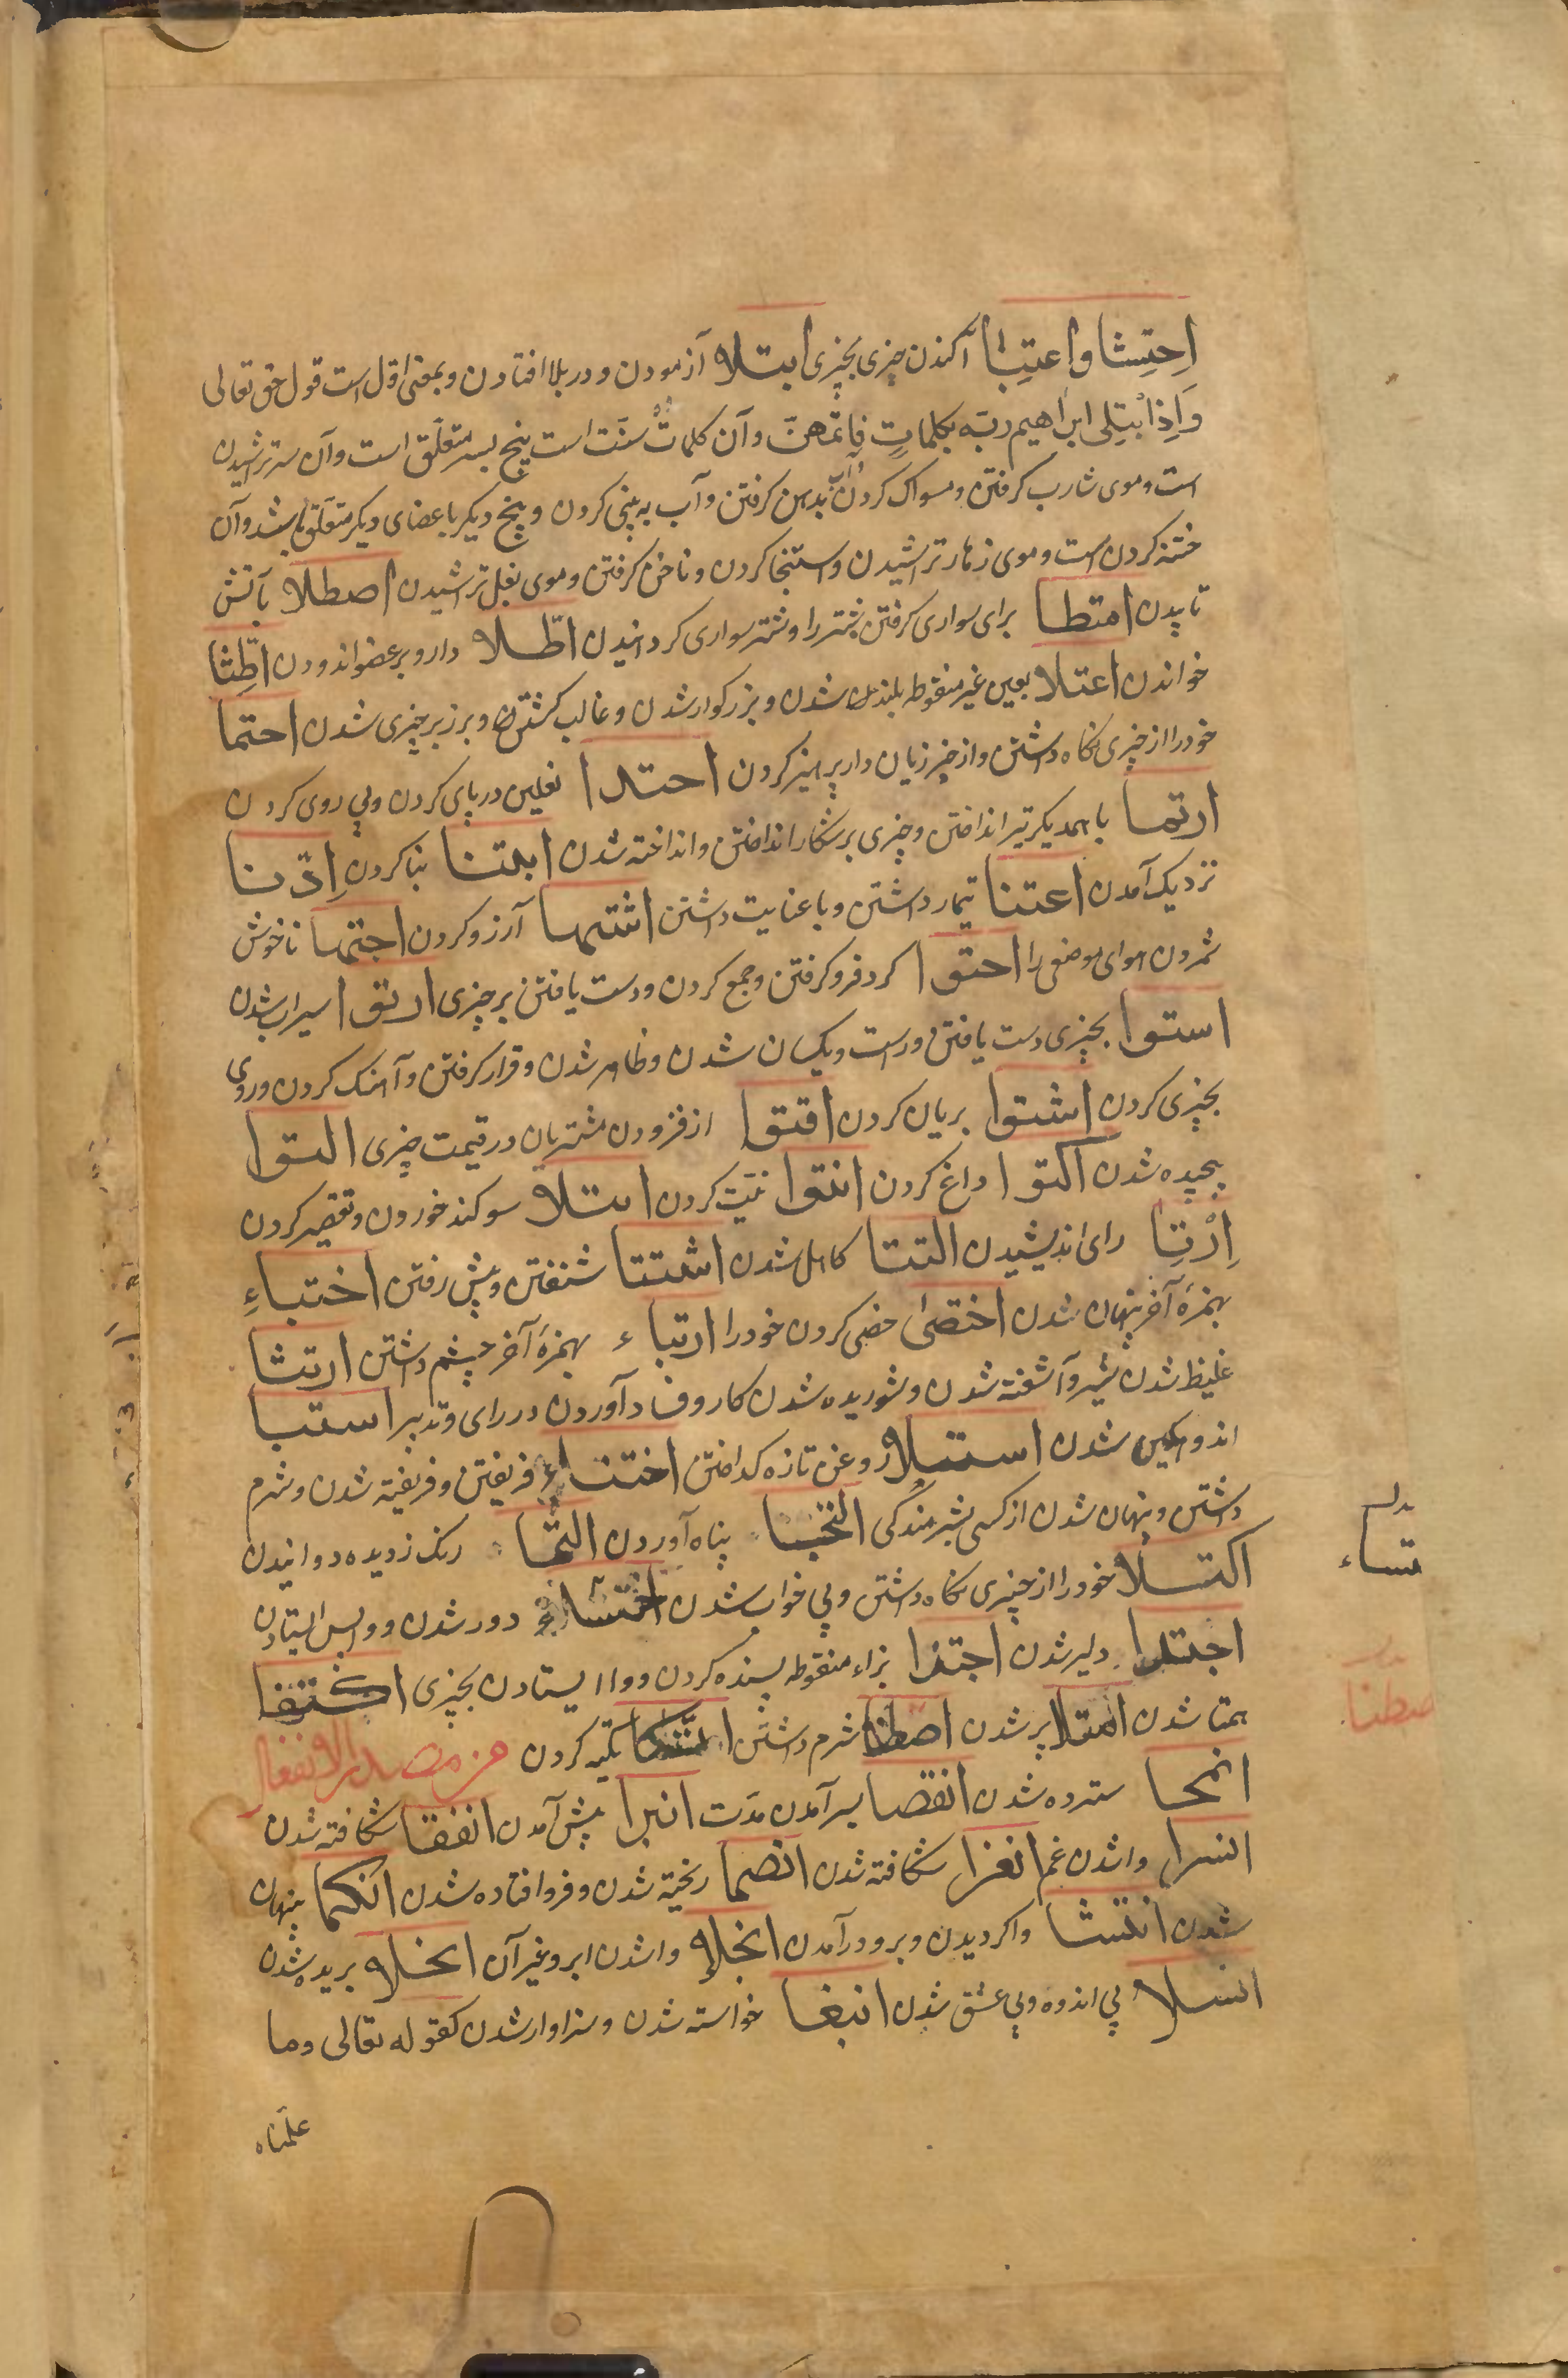 اِحتِشا و اعتِبا آکندن چیزی بچیزی ابتلا آزمودن و در بلا افتادن و بمعنی اول است قول حق تعالی
وَاِذِابْتلی ابراهیم ربّه بکلماتٍ فاتمّهنّ و آن کلمات سنّت است پنج بسر متعلّق است و آن سر تراشیدن
است و موی شارب کرفتن و مسواک کردن آب بدهن کرفتن و آب به بینی کردن و پنج دیکر باعضای دیکر متعلّق باشد و آن
ختنه کردن است و موی زهار تراشیدن و استنجا کردن و ناخن کرفتن و موی بغل تراشیدن اصطلا بآتش
تا پیدن امتطا برای سواری کرفتن شتر را و شتر سواری کردانیدن اطّلا دارو بر عضو اندودن اطِّثا
خواندن اعتلا بعین غیر منقوطه بلند شدن و بزرکوار شدن و غالب کشتن و بر زبر چیزی شدن احتما
خود را از چیزی نکاه داشتن و از چیز زیان دار پرهیز کردن احتدا نعلین در پای کردن و پی روی کردن
ارتما با همدیکر تیر انداختن و چیزی بر شکار انداختن و انداخته شدن ابتنا بنا کردن اِدّنا
نزدیک آمدن اعتنا تیمار داشتن و با عنایت داشتن اشتها آرزو کردن اجتها ناخوش
شمردن هوای موضعی را احتوا کرد فرو کرفتن و جمع کردن و دست یافتن بر چیزی ارتوا سیراب شدن
استوا بچیزی دست یافتن و راست و یکسان شدن و ظاهر شدن و قرار کرفتن و آهنک کردن و روی
بچیزی کردن اشتوا بریان کردن اقتوا از فزودن مشتریان در قیمت چیزی التوا
پیچیده شدن اکتوا داغ کردن انتوا نیّت کردن ایتلا سوکند خوردن و تقصیر کردن
اِرْتا رای اندیشیدن التتا کاهل شدن اشتتا شنفتن و پیش رفتن اختباءِ
بهمزهٔ آخر پنهان شدن اختصیٰ خصی کردن خود را ارتباء بهمزهٔ آخر چشم داشتن ارتثا
غلیظ شدن شیر و آشفته شدن و شوریده شدن کار و فساد آوردن در رای و تدبیر استبا
اندوهکین شدن استلا روغن تازه کداختن اختتاء فریفتن و فریفته شدن و شرم
داشتن و پنهان شدن از کسی بشرمندکی التجا پناه آوردن التما رنک زدیده دوانیدن
اکتلا خود را از چیزی نکاه داشتن و بی خواب شدن اختساء دور شدن و واپس ایستادن
اجترا دلیر شدن اجتزا بزاء منقوطه بسنده کردن و وا ایستادن بچیزی اکتفا
همتا شدن امتلا پر شدن اصطنا شرم داشتن اتّکا تکیه کردن من مصدر الانفعال
انمحا سترده شدن انقضا بسر آمدن مدّت انبرا پیش آمدن انفقا شکافته شدن
انسرا وا شدن غم انغزا شکافته شدن انصما ریخته شدن و فرو افتاده شدن انکما پنهان
شدن انتشا وا کردیدن و برو در آمدن انجلا وا شدن ابر و غیر آن انخلا بریده شدن
انسلا بی اندوه و بی عشق شدن انبغا خواسته شدن و سزاوار شدن کقوله تعالی و ما
علّمناه
بدل
تساء
بدل
صطنا